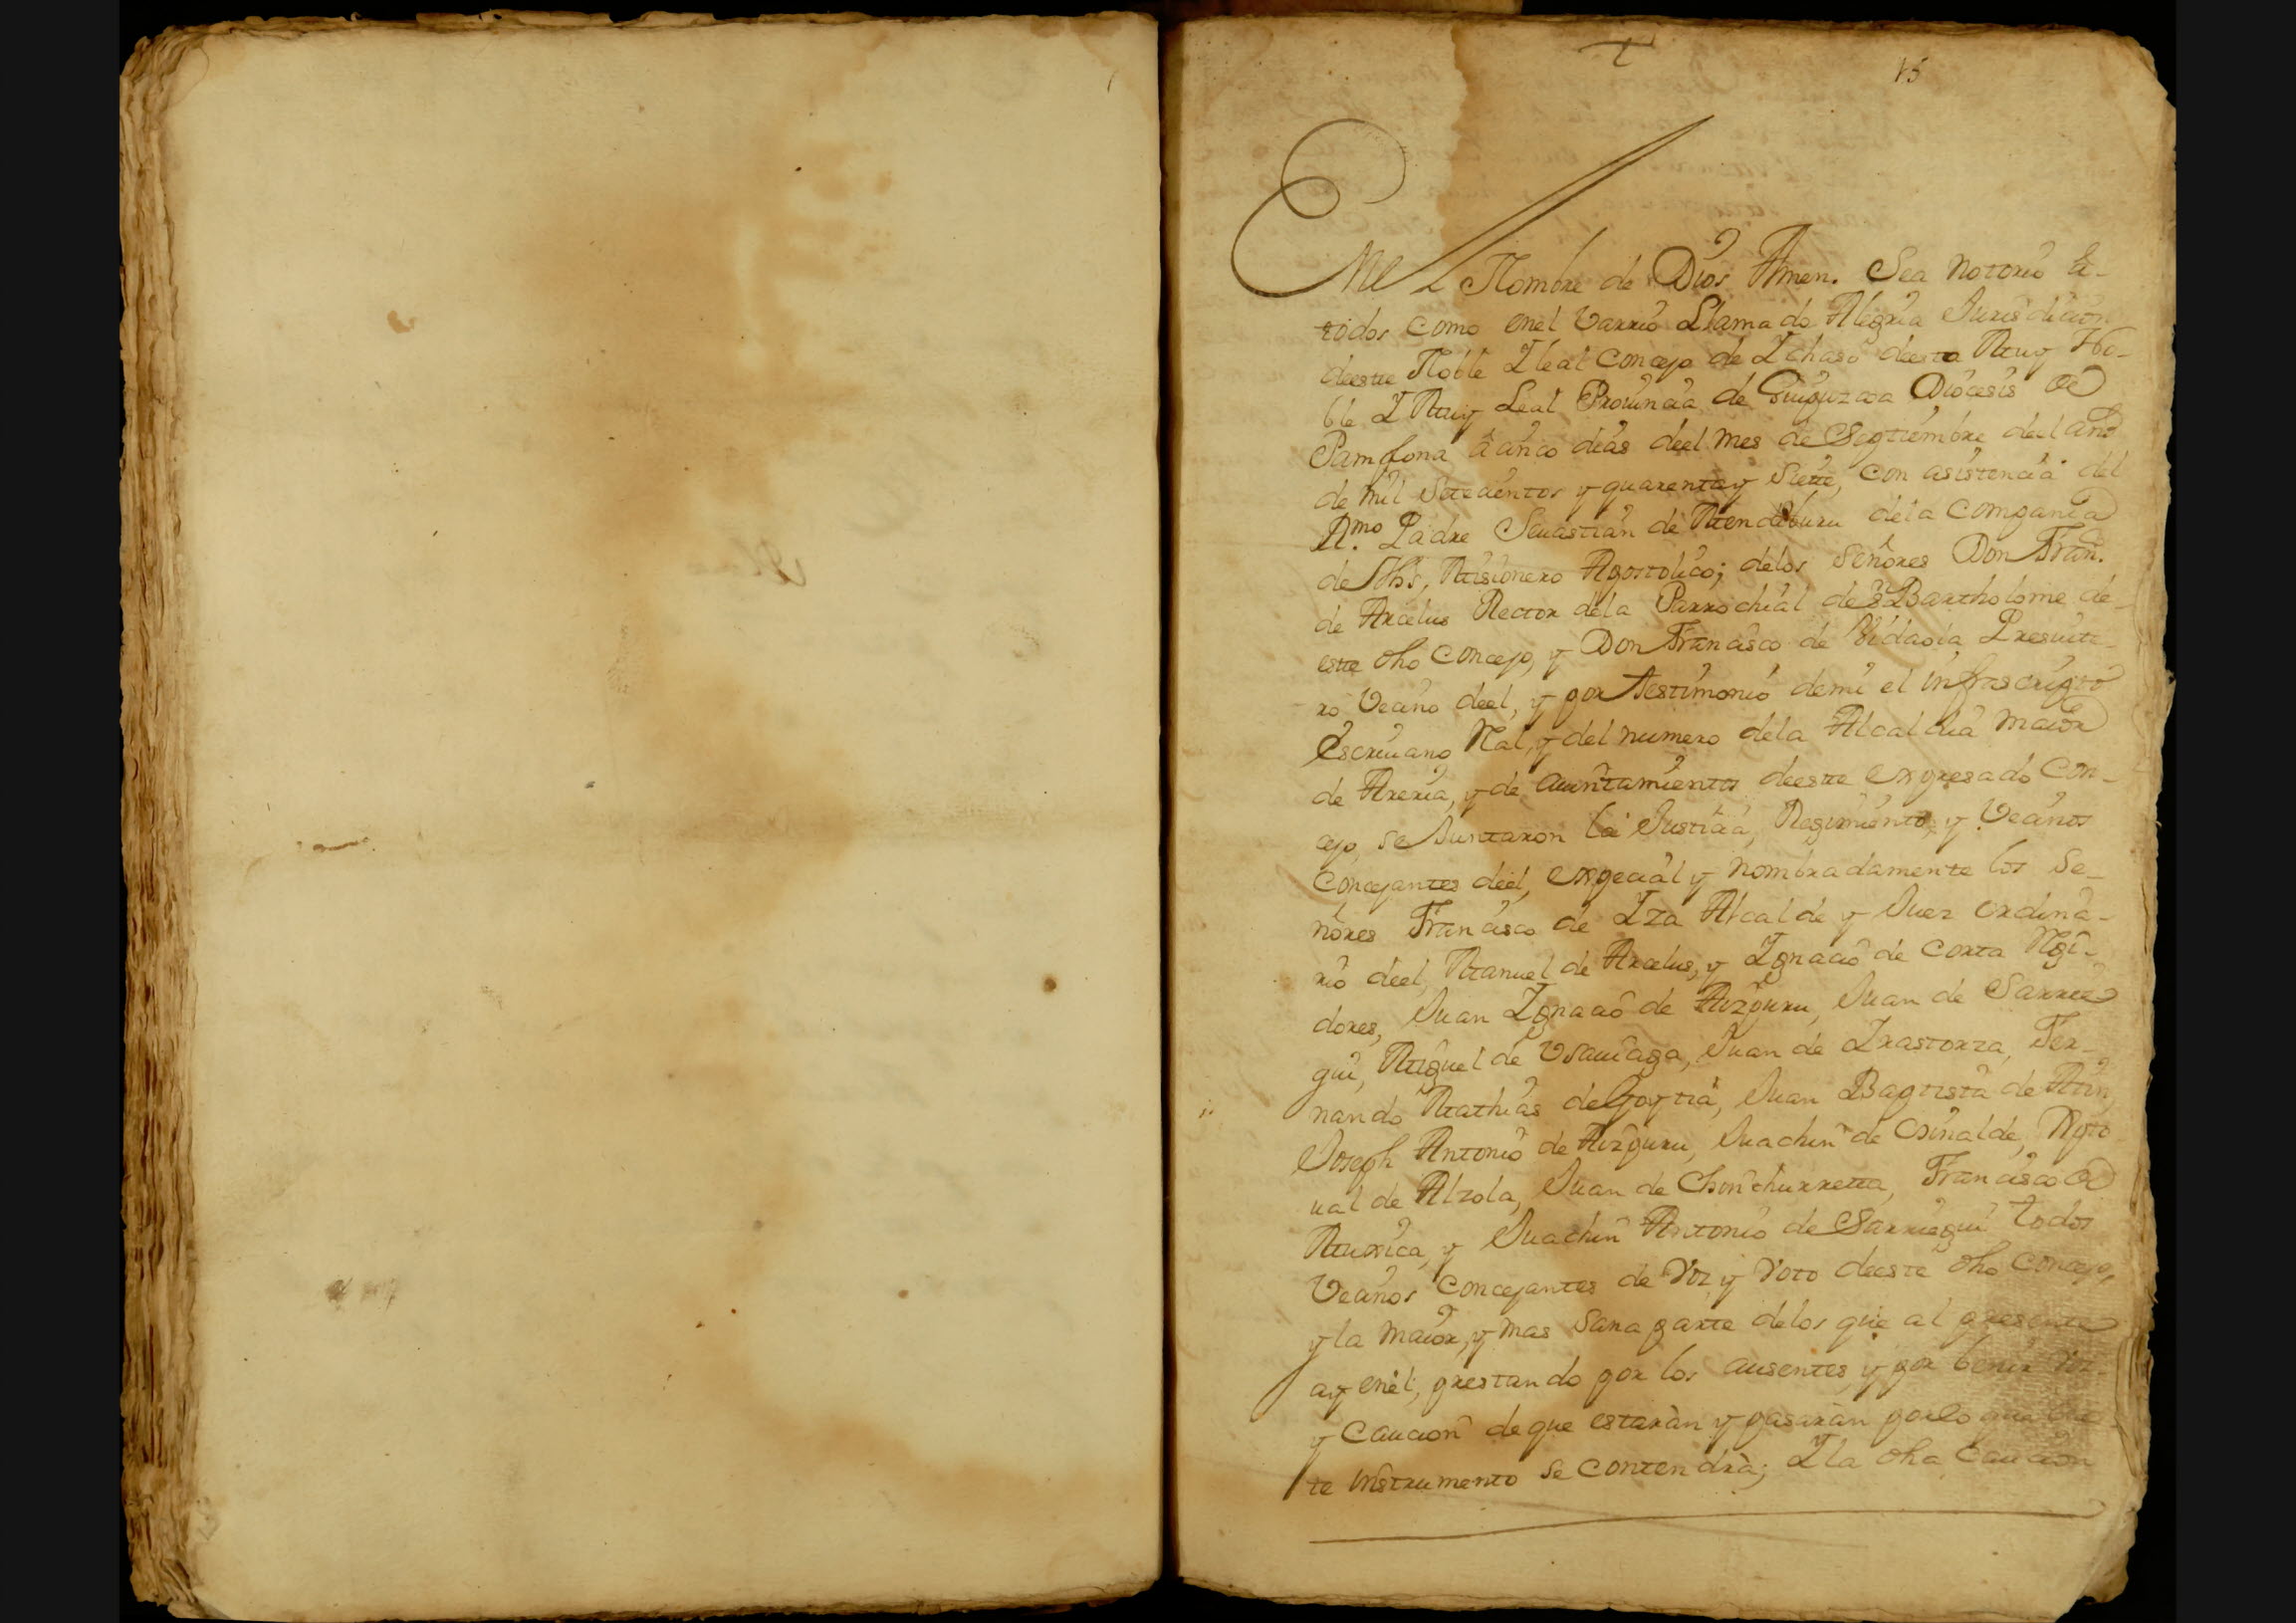 15
Enel Nombre de Dios Amen. Sea notorio a
todos como enel Varrio Llamado Alegria Jurisdicion
deeste Noble Y leal Concejo de Ychaso deesta Muy No-
ble Y Muy Leal Prouincia de Guipuzcoa Diocesis de
Pamplona a cinco dias deel mes de Septiembre deel año
de mil Setecientos y quarenta y Siette, con asistencia del
R.mo Padre Seuastian de Mendiburu dela Compania
de Jhs, Misionero Apostolico; delos Señores Don Fran.
de Arcelus Rector dela Parrochial de Sn Bartholome de-
este dho Concejo, y Don Francisco de Vidaola Presuite-
ro Vecino deel, y por testimonio demi el infrascripto
Escriuano Nal, y del numero dela Alcaldia maior
de Areria, y de aiuntamientos deeste expresado Con-
cejo, se Juntaron la Justicia, Regimiento, y Vecinos
Concejantes deel, expecial y nombradamente los Se-
ñores Francisco de Yza Alcalde y Juez ordina-
rio deel, Manuel de Arcelus, y Ygnacio de Corta Regi-
dores, Juan Ygnacio de Aizpuru, Juan de Sarrie-
gui, Miguel de Vsauiaga, Juan de Yrastorza, Fer-
nando Mathias de Goytia, Juan Baptista de Min,
Joseph Antonio de Aizpuru, Juachin de Osinalde,
ual de Alzola, Juan de Chinchurretta, Francisco de
Muxica, y Juachin Antonio de Sarriegui todos
Vecinos Concejantes de Voz y Voto deeste dho Concejo,
y la maior, y mas Sana parte delos que al presente
ay enel, prestando por los ausentes y por benir Voz
y Caucion de que estaràn y pasaràn por lo que en es-
te instrumento se contendrà; Y la dha Caucion